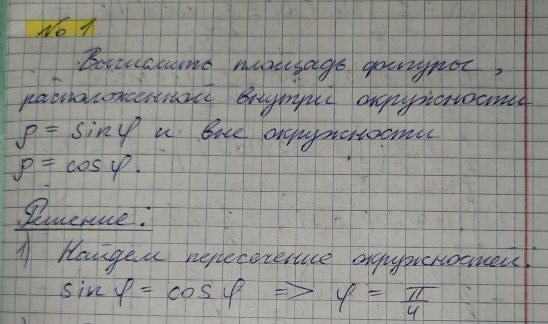 № 1
Вычислить площадь фигуры,
расположенной внутри окружности
ρ = sin φ и вне окружности
ρ = cos φ.
Решение:
1) Найдем пересечение окружностей:
sin φ = cos φ => φ = π/4